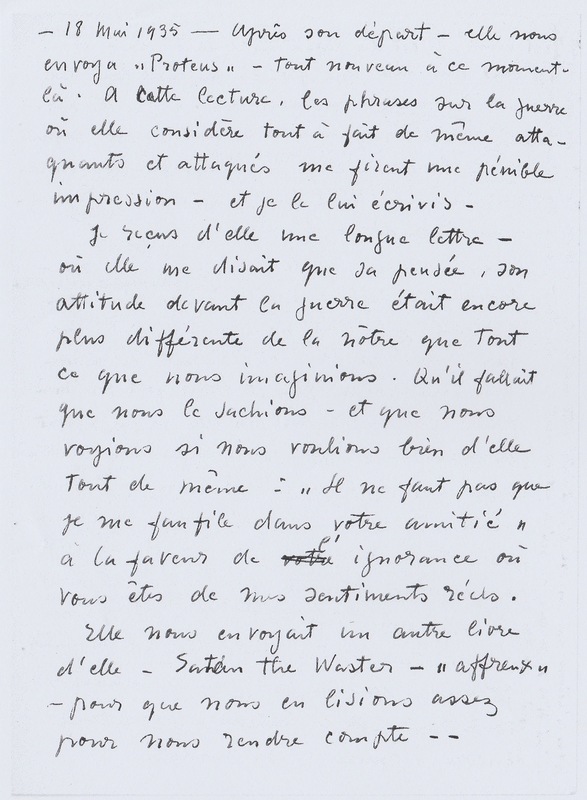 — 18 Mai 1935 — Après son départ — elle nous
envoya „Proteus" — tout nouveau à ce moment-
là. A cette lecture, les phrases sur la guerre
où elle considère tout à fait de même atta-
quants et attaqués me firent une pénible
impression — et je le lui écrivis —
Je reçus d'elle une longue lettre —
où elle me disait que sa pensée, son
attitude devant la guerre était encore
plus différente de la nôtre que tout
ce que nous imaginions. Qu'il fallait
que nous le sachions — et que nous
voyions si nous voulions bien d'elle
tout de même : „Il ne faut pas que
je me faufile dans votre amitié"
à la faveur de l' ignorance où
vous êtes de mes sentiments réels.
Elle nous envoyait un autre livre
d'elle — Satan the Waster — „affreux"
— pour que nous en lisions assez
pour nous rendre compte --